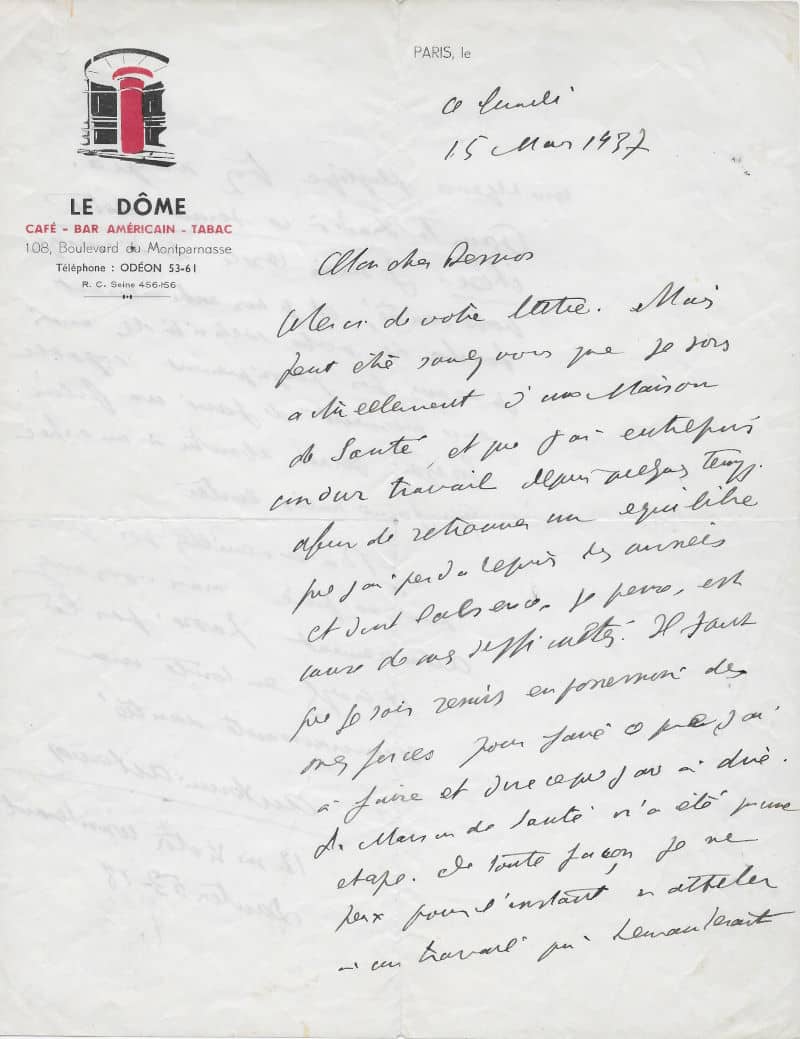 PARIS, le
ce lundi
15 Mars 1937
LE DÔME
CAFÉ - BAR AMÉRICAIN - TABAC
108, Boulevard du Montparnasse
Téléphone : ODÉON 53-61
R. C. Seine 456-156
Mon cher Desnos
Merci de votre lettre. Mais
peut être savez vous que je suis
actuellement d'une Maison
de Santé, et que j'ai entrepris
un dur travail depuis quelques temps
afin de retrouver un équilibre
que j'ai perdu depuis des années
et dont l'absence, je pense, est
cause de mes difficultés. Il faut
que je sois remis en possession de
mes forces pour faire ce que j'ai
à faire et dire ce que j'ai à dire.
La Maison de Santé n'a été qu'une
étape. De toute façon je ne
peux pour l'instant m'atteler
à un travail qui demanderait